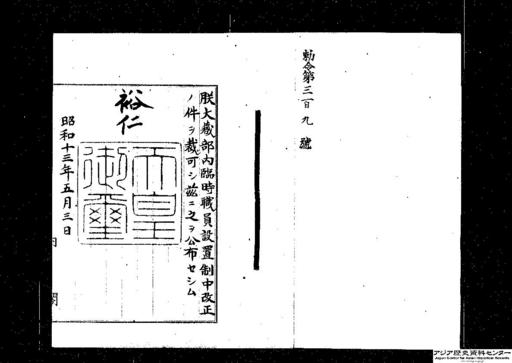 勅令第三百九號
朕大藏部内臨時職員設置制中改正
ノ件ヲ裁可シ茲ニ之ヲ公布セシム
裕仁
天皇
御璽
昭和十三年五月三日
アジア歴史資料センター
Japan Center for Asian Historical Records